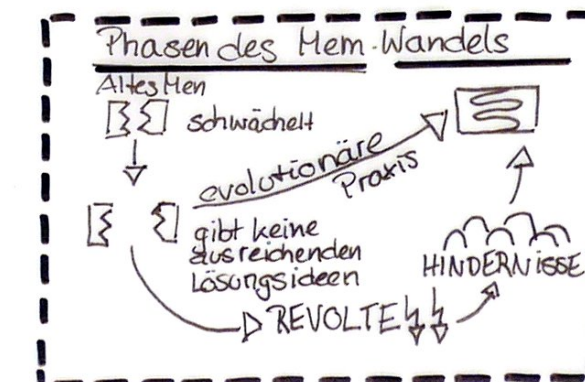 Phasen des Mem-Wandels
Altes Mem
schwächelt
evolutionäre
Praxis
gibt keine
ausreichenden
Lösungsideen
REVOLTE
HINDERNISSE